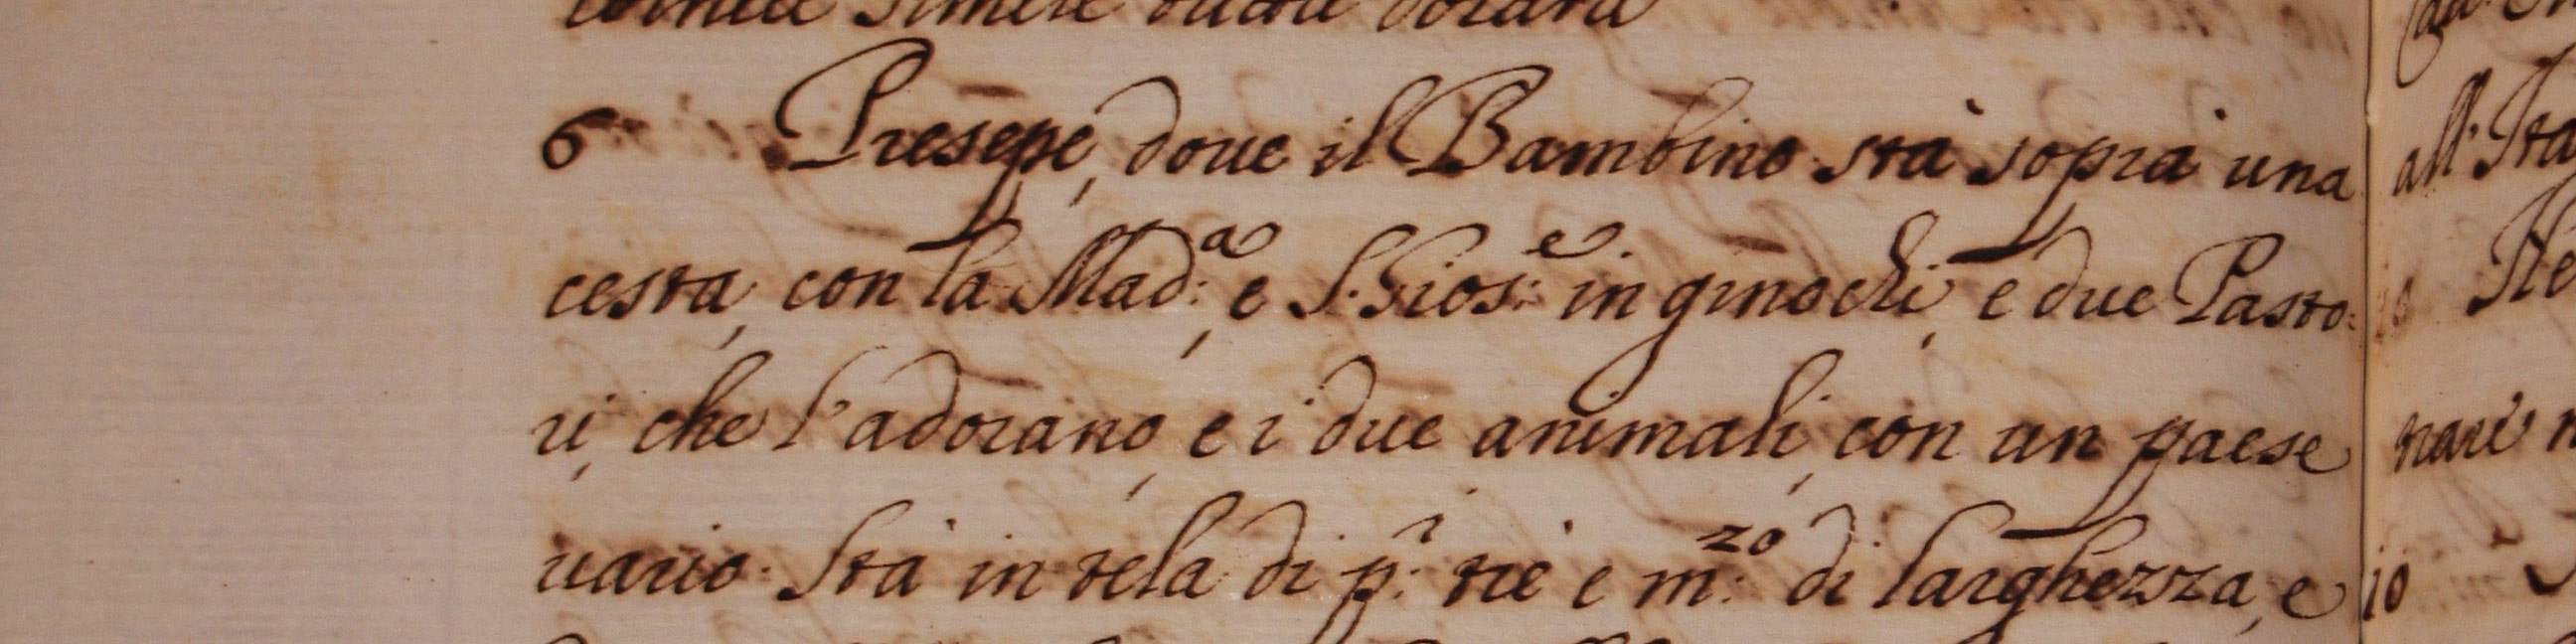 cornice simile tutta dorata
6 Presepe, doue il Bambino stà sopra una
cesta, con la Mad:ᵃ, e S. Gios:ᵉ in ginochi, e due Pasto:
ri, che l'adorano, e i due animali, con un paese
uario. Stà in tela di p:ⁱ trè e m:ᶻᵒ di larghezza, e
all'
10